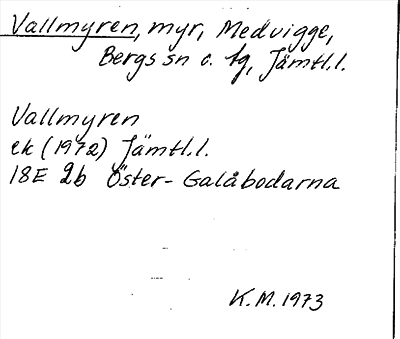 Vallmyren, myr, Medvigge,
Bergs sn o. tg, Jämtl.l.
Vallmyren
ek (1972) Jämtl.l.
18E 2b Öster-Galåbodarna
K.M. 1973